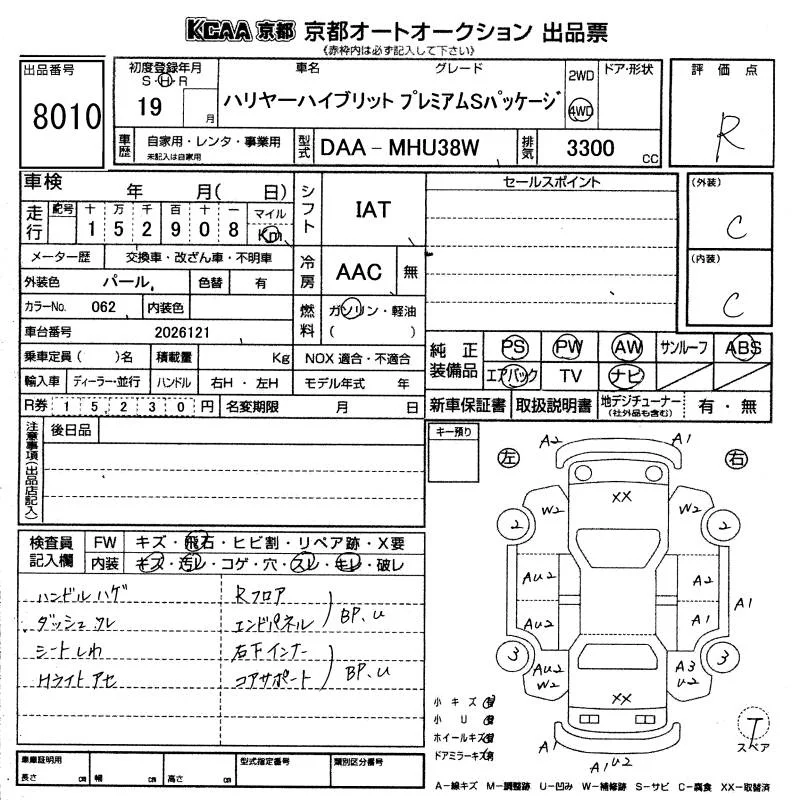 KCAA 京都 京都オートオークション 出品票
《赤枠内は必ず記入して下さい》
出品番号
8010
初度登録年月
S・H・R
19
月
車名
グレード
ハリヤーハイブリット プレミアムSパッケージ
2WD
4WD
ドア・形状
評価点
R
車歴
自家用・レンタ・事業用
未記入は自家用
型式
DAA-MHU38W
排気
3300
cc
車検
年
月(
日)
走行
記号
十
万
千
百
十
一
マイル
1
5
2
9
0
8
Km
メーター歴
交換車・改ざん車・不明車
外装色
パール
色替
有
カラーNo.
062
内装色
車台番号
2026121
乗車定員( )名
積載量
Kg
輸入車
ディーラー・並行
ハンドル
右H・左H
R券
15,230円
名変期限
月
日
シフト
IAT
冷房
AAC
無
燃料
ガソリン・軽油
( )
NOX適合・不適合
モデル年式
年
セールスポイント
(外装)
C
(内装)
C
純正装備品
PS
PW
AW
サンルーフ
ABS
エアバック
TV
ナビ
新車保証書
取扱説明書
地デジチューナー
(社外品も含む)
有・無
注意事項(出品店記入)
後日品
キー預り
左
右
検査員記入欄
FW
キズ・飛石・ヒビ割・リペア跡・X要
内装
キズ・汚レ・コゲ・穴・スレ・キレ・破レ
ハンドルハゲ
Rフロア
ダッシュスレ
エンドパネル
BP.u
シートしわ
右下インナー
Hライトアセ
コアサポート
BP.u
A2
A1
XX
W2
W2
2
2
AU2
A2
AU2
A1
A1
3
3
AU2
W2
A3
U2
XX
A1
A1U2
T
スペア
小キズ有
小U有
ホイールキズ有
ドアミラーキズ有
車庫証明用
長さ
cm
幅
cm
高さ
cm
型式指定番号
類別区分番号
A-線キズ M-調整跡 U-凹み W-補修跡 S-サビ C-腐食 XX-取替済